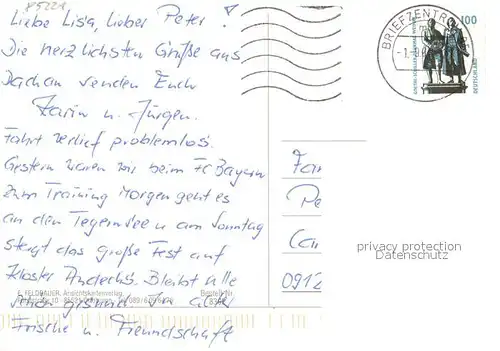 85221
Liebe Lisa, lieber Peter!
Die herzlichsten Grüße aus
Dachau senden Euch
Karin u. Jürgen.
Fahrt verlief problemlos.
Gestern waren wir beim FC Bayern
zum Training Morgen geht es
an den Tegernsee u am Sonntag
steigt das große Fest auf
Kloster Andechs. Bleibt alle
schön gesund In alter
Frische u. Freundschaft
A. FELDBAUER, Ansichtskartenverlag
Bestell-Nr.
BRIEFZENTRUM
-1.-9
100
GOETHE-SCHILLER-DENKMAL WEIMAR
DEUTSCHLAND
Fam
Pe
Car
0912
privacy protection
Datenschutz